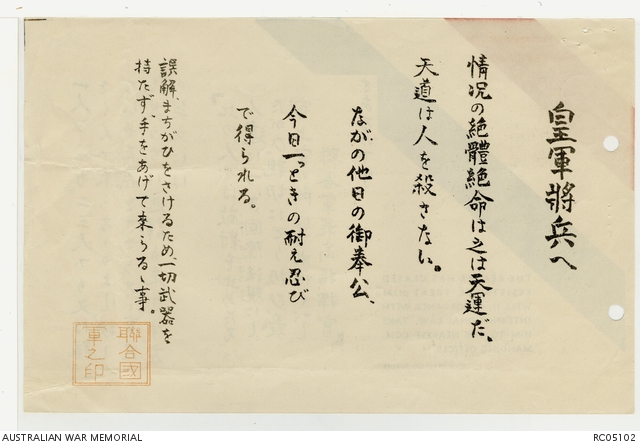 皇軍將兵へ
情況の絶體絶命は之は天運だ。
天道は人を殺さない。
ながの他日の御奉公、
今日一っときの耐え忍び
で得られる。
誤解、まちがひをさけるため、一切武器を
持たず、手をあげて来らるゝ事。
聯合國
軍之印
AUSTRALIAN WAR MEMORIAL
RC05102